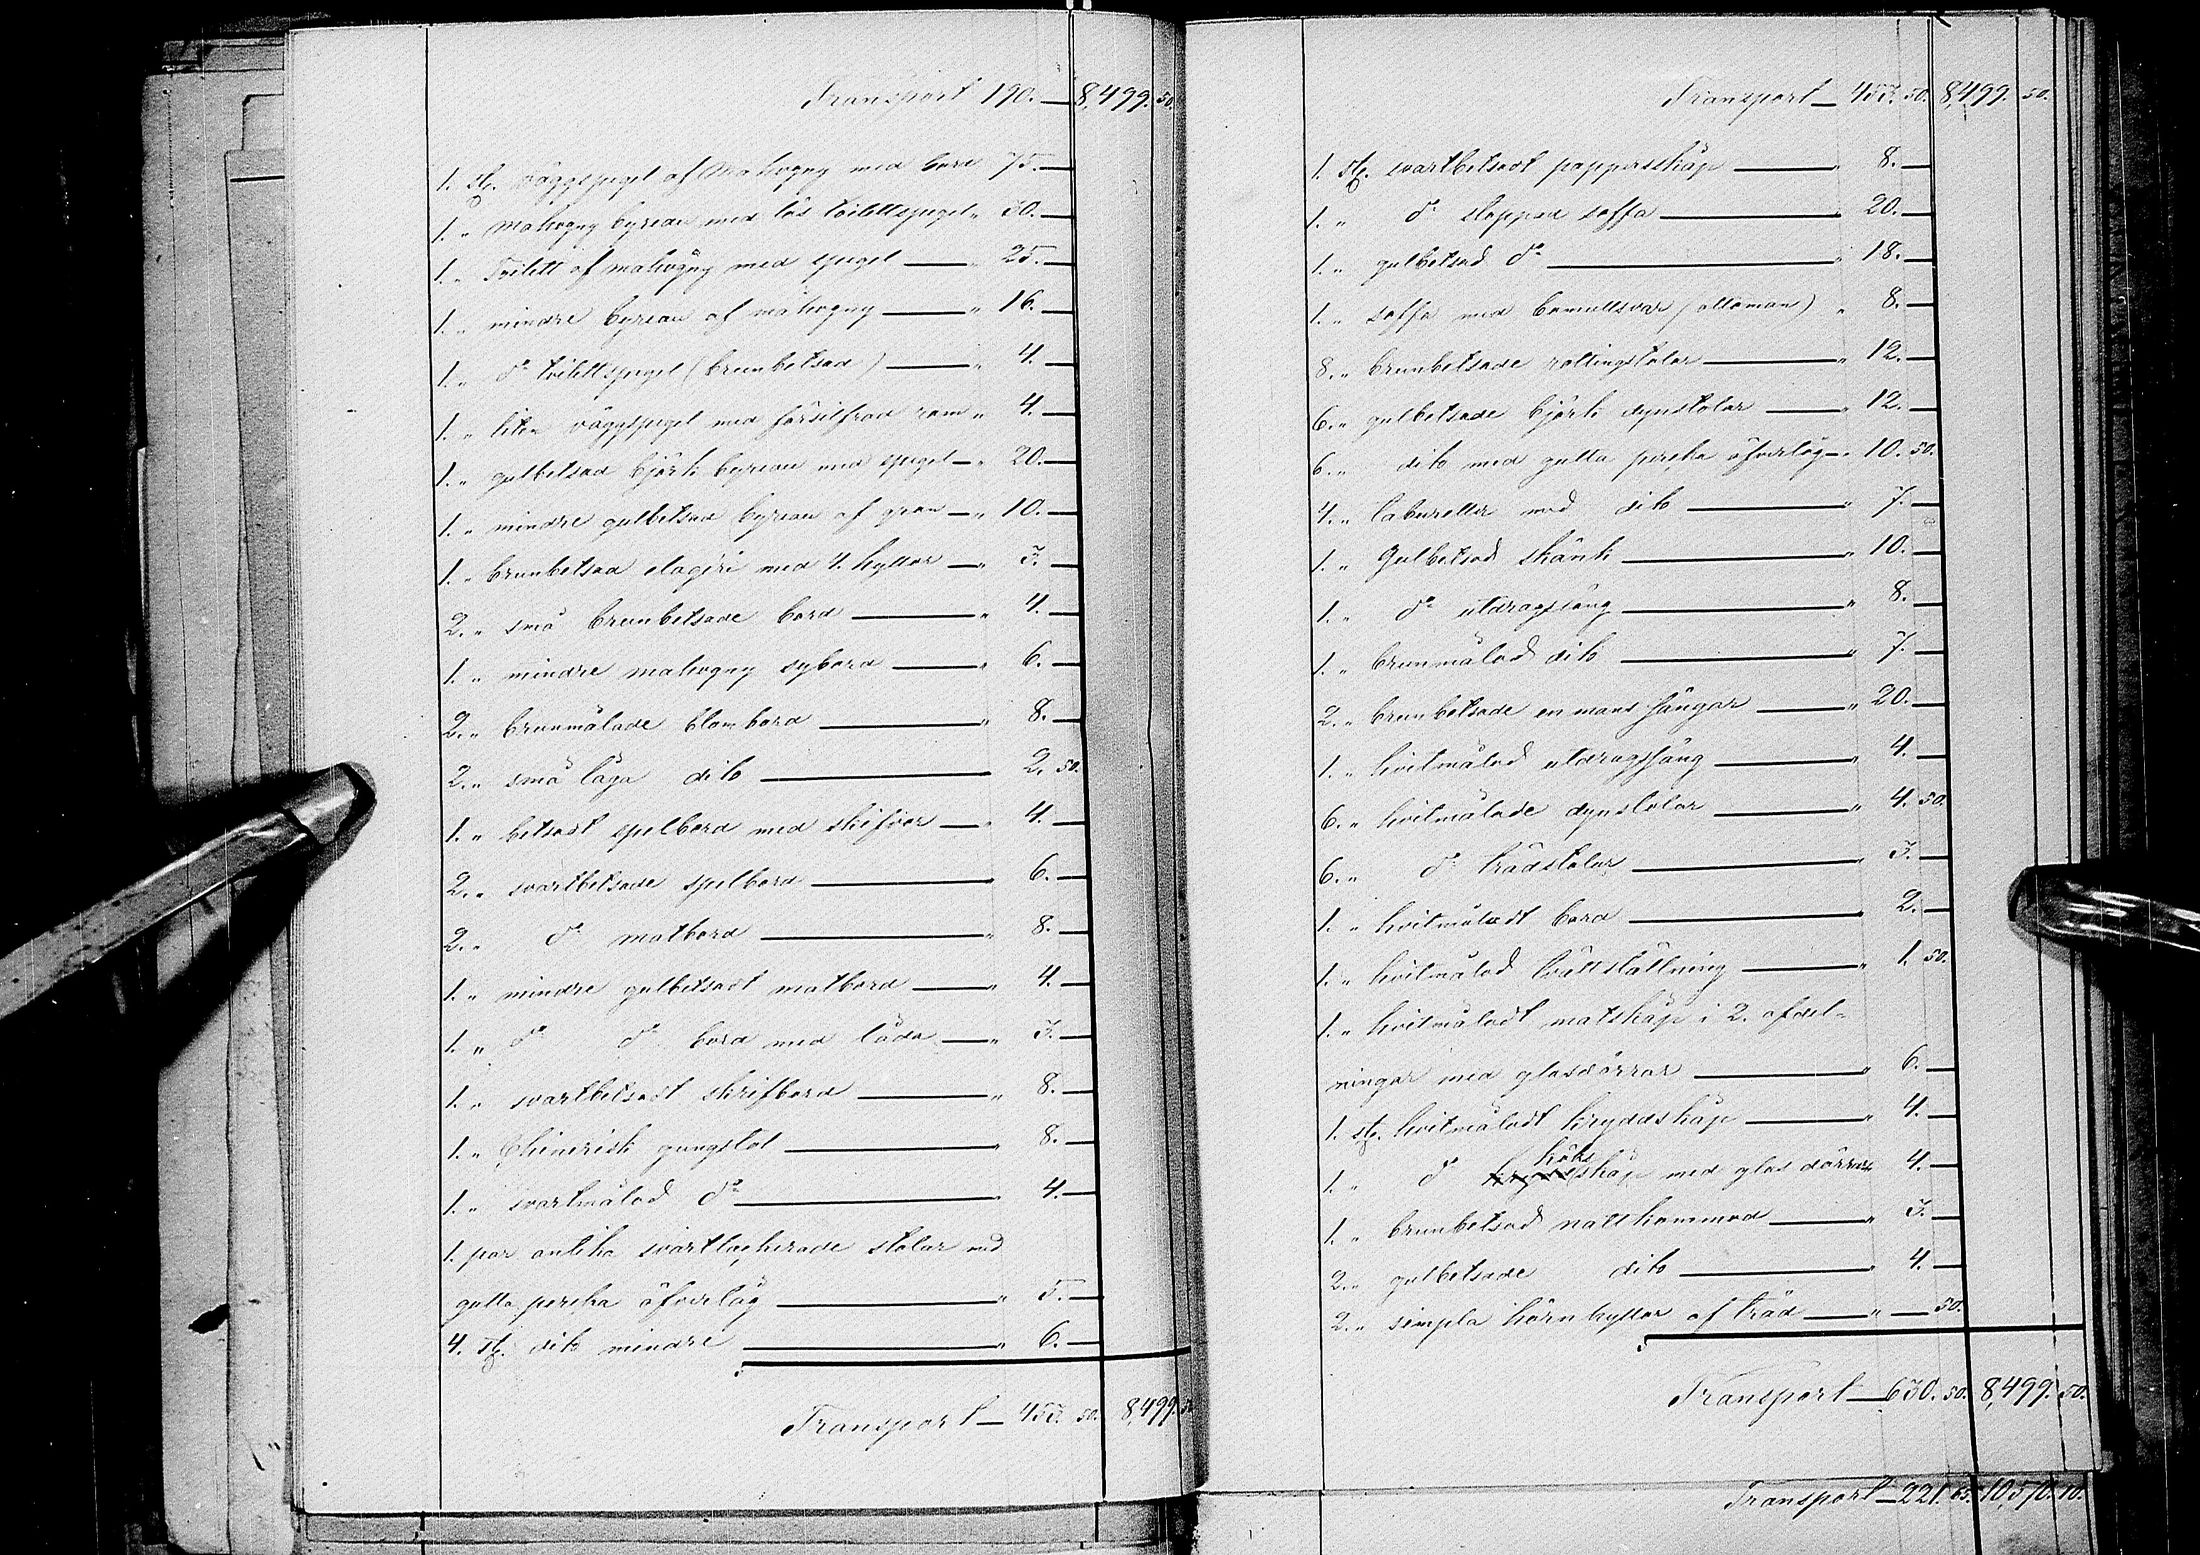 Transport 190. — 8,499. 50.
1. st. väggspegel af Mahogny med bord 75. —
1. „ Mahogny byreau med lös toilettspegel „ 30. —
1. „ Toilett af mahogny med spegel — „ 25. —
1. „ mindre byreau af mahogny — „ 16. —
1. „ d:o toilettspegel (brunbetsad) — „ 4. —
1. „ liten väggspegel med försilfrad ram „ 4. —
1. „ gulbetsad björk byreau med spegel — „ 20. —
1. „ mindre gulbetsad byreau af gran — „ 10. —
1. „ brunbetsad etagéri med 4. hyllor — „ 3. —
2. „ små brunbetsade bord — „ 4. —
1. „ mindre mahogny sybord — „ 6. —
2. „ brunmålade blombord — „ 8. —
2. „ små låga dito — 2. 50.
1. „ betsadt spelbord med skifvor — „ 4. —
2. „ svartbetsade spelbord — „ 6. —
2. „ d:o matbord — „ 8. —
1. „ mindre gulbetsadt matbord — „ 4. —
1. „ d:o d:o bord med låda — „ 3. —
1. „ svartbetsadt skrifbord — „ 8. —
1. „ Chinesisk gungstol — „ 8. —
1. „ svartmålad d:o — „ 4. —
1. par antika svartlackerade stolar med
gutta percha öfverlag — „ 5. —
4. st. dito mindre — „ 6. —
Transport — 453. 50. 8,499. 50
Transport — 453. 50. 8,499. 50.
1. st. svartbetsadt pappersskåp — „ 8. —
1. „ d:o stoppad soffa — „ 20. —
1. „ gulbetsad d:o — „ 18. —
1. „ soffa med bomullsvar (ottoman) „ 8. —
8. „ brunbetsade rottingstolar — „ 12. —
6. „ gulbetsade björk dynstolar — „ 12. —
6. „ dito med gutta percha öfverlag — „ 10. 50.
4. „ taburetter med dito — „ 7. —
1. „ Gulbetsad skänk — „ 10. —
1. „ d:o utdragssäng — „ 8. —
1. „ brunmålad dito — „ 7. —
2. „ brunbetsade en mans sängar — „ 20. —
1. „ hvitmålad utdragssäng — „ 4. —
6. „ hvitmålade dynstolar — „ 4. 50.
6. „ d:o trädstolar — „ 3. —
1. „ hvitmåladt bord — „ 2. —
1. „ hvitmålad tvättställning — „ 1. 50.
1. „ hvitmåladt matskåp i 2. afdel-
ningar med glasdörrar — „ 6. —
1. st. hvitmåladt kryddskåp — „ 4. —
1. „ d:o köksskåp med glas dörrar 4. —
1. „ brunbetsad nattkommod — „ 3. —
2. „ gulbetsade dito — „ 4. —
2. „ simpla hörnhyllor af träd — „ — 50.
Transport — 630. 50. 8,499. 50.
Transport — 221. 65. 10,570. 10.